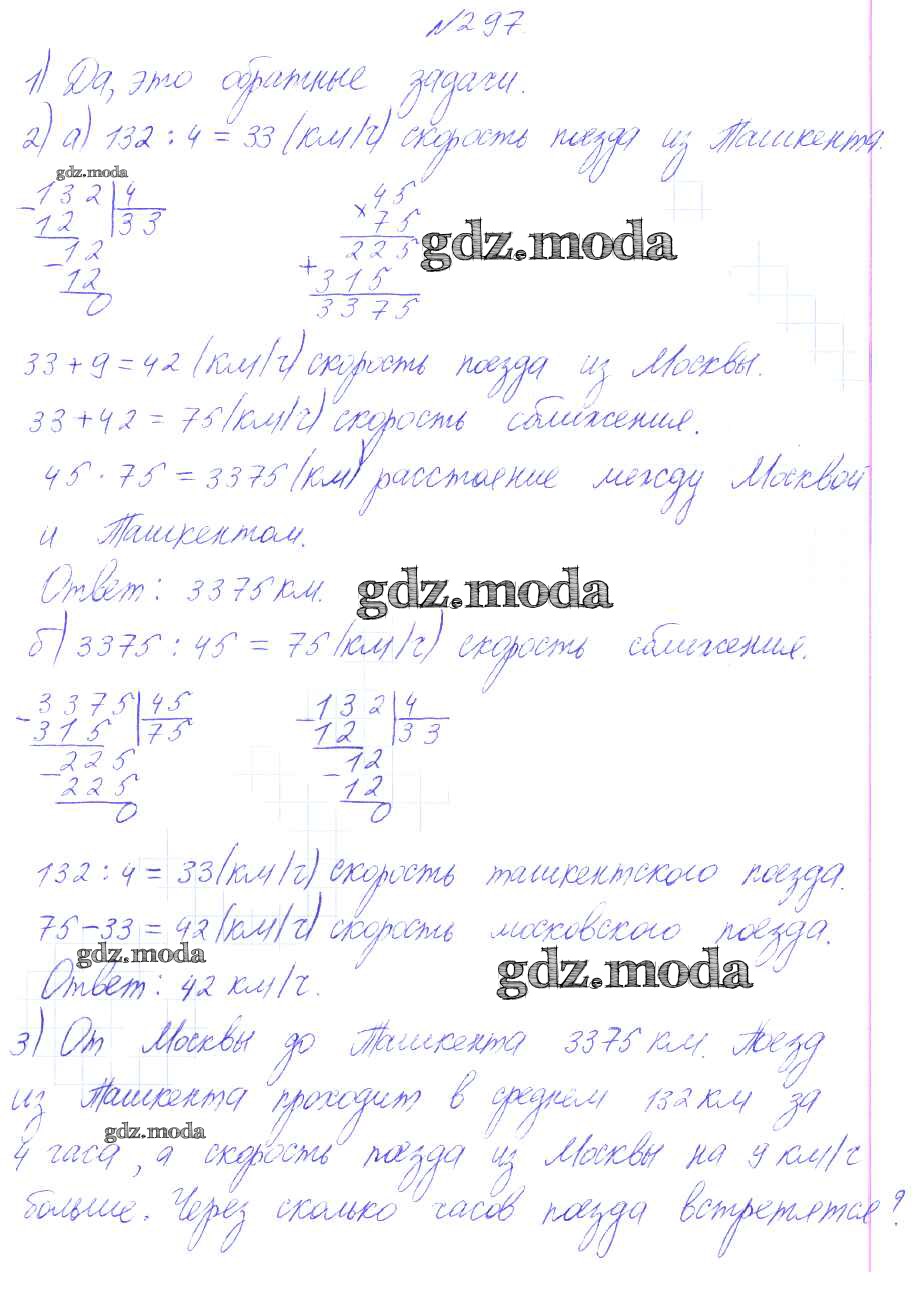 №297.
1) Да, это обратные задачи.
2) а) 132 : 4 = 33 (км/ч) скорость поезда из Ташкента.
gdz.moda
- 132 | 4
12 | 33
- 12
12
0
× 45
75
225
+ 315
3375
gdz.moda
33 + 9 = 42 (км/ч) скорость поезда из Москвы.
33 + 42 = 75 (км/ч) скорость сближения.
45 · 75 = 3375 (км) расстояние между Москвой
и Ташкентом.
Ответ: 3375 км.
gdz.moda
б) 3375 : 45 = 75 (км/ч) скорость сближения.
- 3375 | 45
315 | 75
- 225
225
0
- 132 | 4
12 | 33
- 12
12
0
132 : 4 = 33 (км/ч) скорость ташкентского поезда.
75 - 33 = 42 (км/ч) скорость московского поезда.
gdz.moda
gdz.moda
Ответ: 42 км/ч.
3) От Москвы до Ташкента 3375 км. Поезд
из Ташкента проходит в среднем 132 км за
gdz.moda
4 часа, а скорость поезда из Москвы на 9 км/ч
больше. Через сколько часов поезда встретятся?